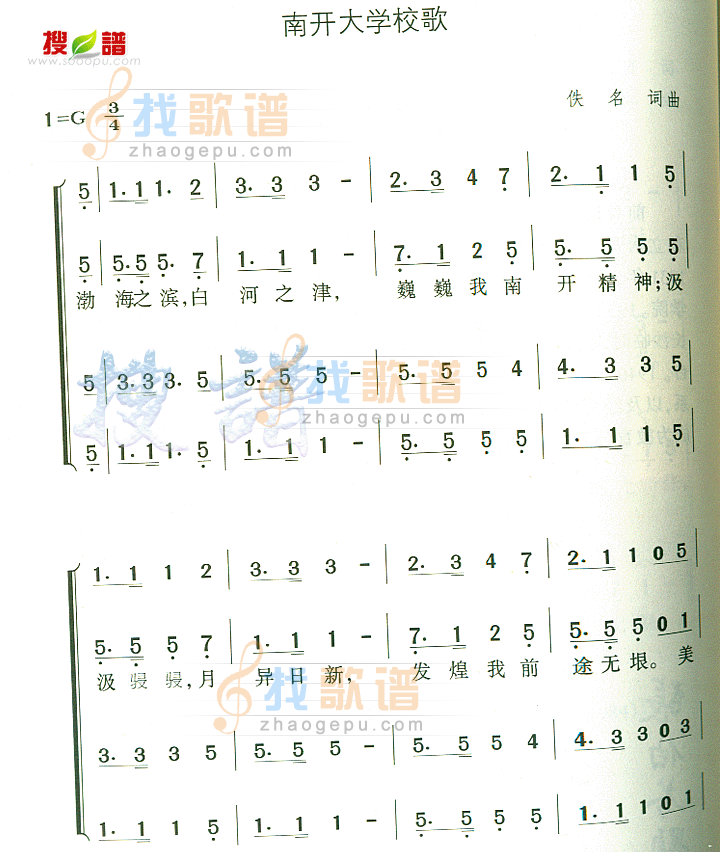 南开大学校歌
搜谱
www.sooopu.com
找歌谱
zhaogepu.com
1=G 3/4
佚 名 词曲
5 | 1. 1 1. 2 | 3. 3 3 - | 2. 3 4 7 | 2. 1 1 5 |
5 | 5. 5 5. 7 | 1. 1 1 - | 7. 1 2 5 | 5. 5 5 5 |
渤 海之滨,白 河之津, 巍巍我南 开精神;汲
搜谱
找歌谱
zhaogepu.com
5 | 3. 3 3. 5 | 5. 5 5 - | 5. 5 5 4 | 4. 3 3 5 |
5 | 1. 1 1. 5 | 1. 1 1 - | 5. 5 5 5 | 1. 1 1 5 |
1. 1 1 2 | 3. 3 3 - | 2. 3 4 7 | 2. 1 1 0 5 |
5. 5 5 7 | 1. 1 1 - | 7. 1 2 5 | 5. 5 5 0 1 |
汲骎骎,月 异日新, 发煌我前 途无垠。美
找歌谱
zhaogepu.com
3. 3 3 5 | 5. 5 5 - | 5. 5 5 4 | 4. 3 3 0 3 |
1. 1 1 5 | 1. 1 1 - | 5. 5 5 5 | 1. 1 1 0 1 |